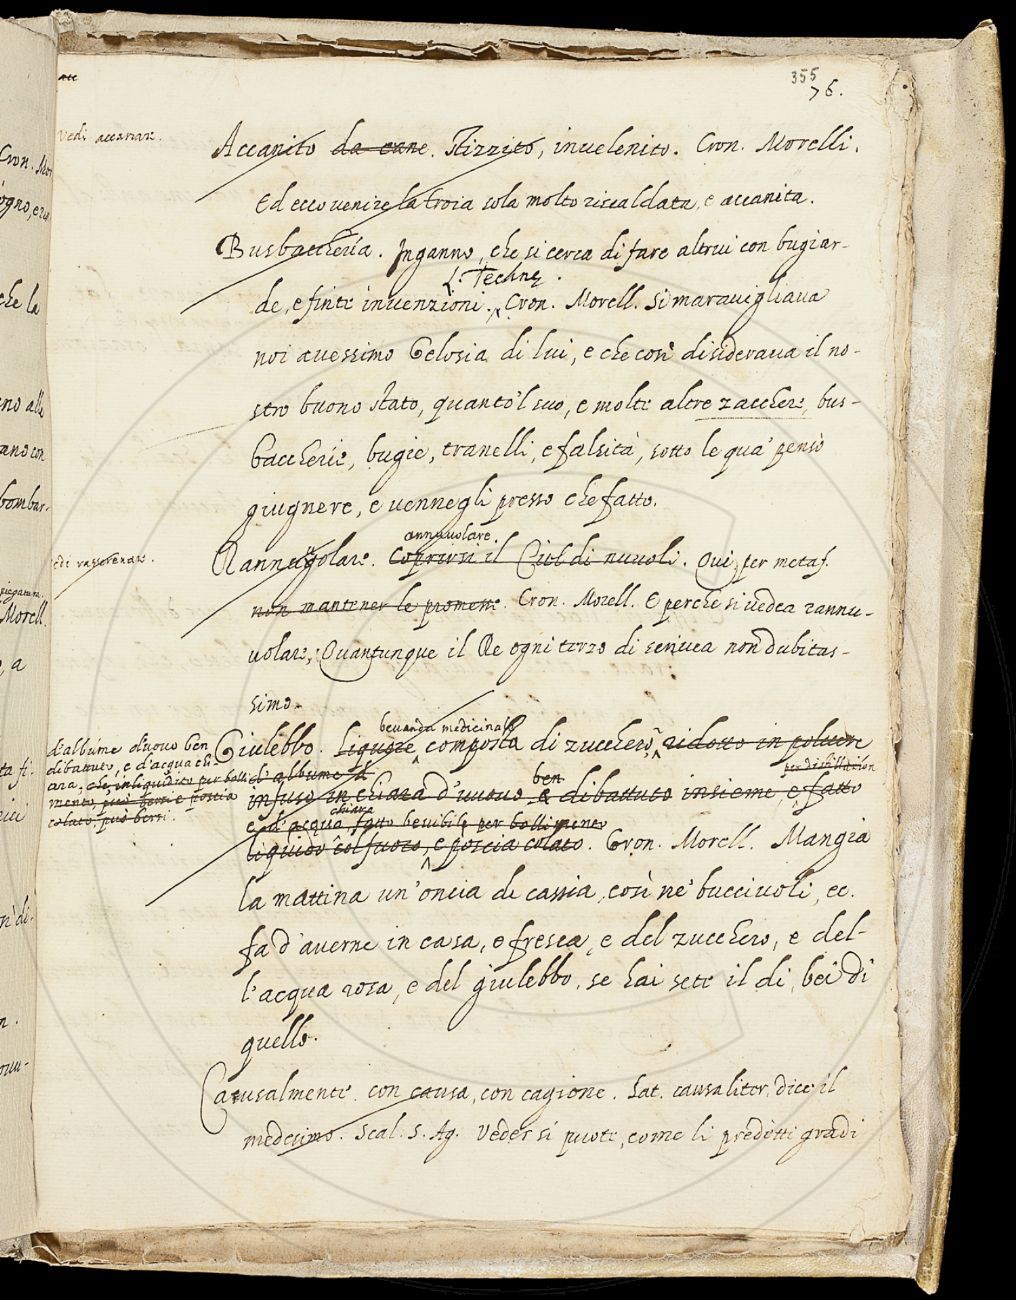 355
76.
Vedi accanare.
Accanito da cane. Stizzito, invelenito. Cron. Morelli.
Ed ecco venire la troia sola molto riscaldata, e accanita.
Busbaccheria. Inganno, che si cerca di fare altrui con bugiar-
L. Techne.
de, e finte invenzioni. Cron. Morell. Si maravigliava
noi avessimo Gelosia di lui, e che così disiderava il no-
stro buono stato, quanto 'l suo, e molte altre zacchere, bus-
baccherie, bugie, tranelli, e falsità, sotto le qua' pensò
giugnere, e vennegli presso che fatto.
annuvolare.
Vedi rasserenare.
Rannugolare. Coprirsi il Ciel di nuvoli. Qui per metaf.
non mantener le promesse. Cron. Morell. E perchè si vedea rannu-
volare, Quantunque il Re ogni terzo dì scrivea non dubitas-
simo.
bevanda medicinale
Giulebbo. Liquore composta di zucchero, ridotto in polvere
d'albume d'uovo ben
dibattuto, e d'acqua chi-
ara, che inliquidito per bolli-
mento, può bersi e poscia
colato può bersi.
d'albume d
ben per distillazion
infuso in chiara d'uovo e dibattuto insieme, e fatto
chiara
e d'acqua, fatto bevibile per bollimento
liquido col fuoco, e poscia colato. Cron. Morell. Mangia
la mattina un'oncia di cassia, così ne' bucciuoli, ec.
fa d'averne in casa, e fresca, e del zucchero, e del-
l'acqua rosa, e del giulebbo, se hai sete il dì, bei di
quello.
Causalmente. con causa, con cagione. Lat. causaliter, dice il
medesimo. Scal. S. Ag. Veder si puote, come li predetti gradi